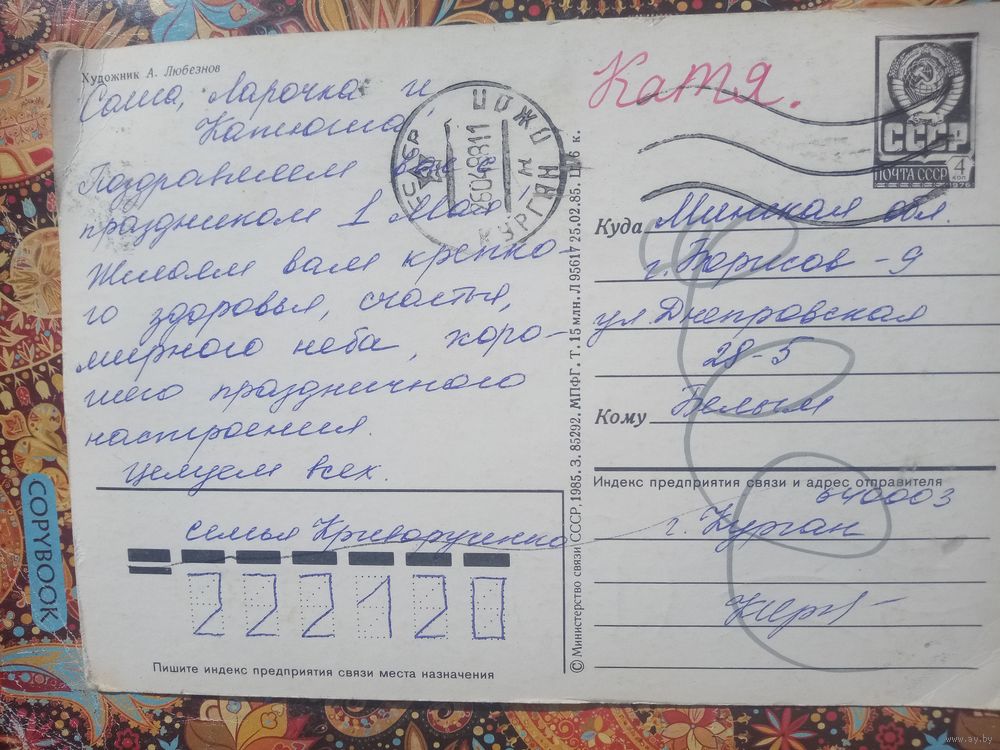 Художник А. Любезнов
Саша, Ларочка и
Катюша,
Поздравляем вас с
праздником 1 Мая!
Желаем вам крепко-
го здоровья, счастья,
мирного неба, хоро-
шего праздничного
настроения.
Целуем всех.
семья Криворученко
222120
Пишите индекс предприятия связи места назначения
© Министерство связи СССР, 1985. З. 85292. МПФГ. Т. 15 млн. Л 95617 25.02.85. Ц. 6 к.
Катя.
СССР
ПОЧТА СССР
4 коп
1976
КУРГАН
Куда Минская обл.
г. Борисов - 9
ул. Днепровская
28-5
Кому Белым
Индекс предприятия связи и адрес отправителя
640003
г. Курган
COPYBOOK
www.ay.by